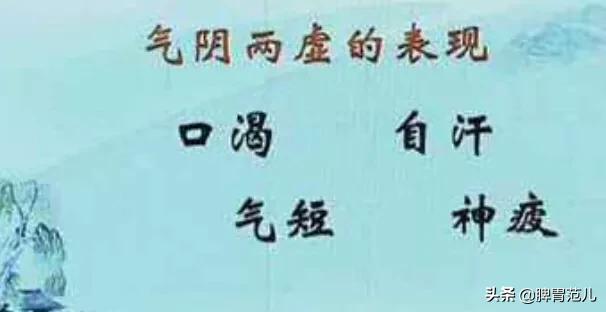 气阴两虚的表现
口渴 自汗
气短 神疲
头条 @脾胃范儿